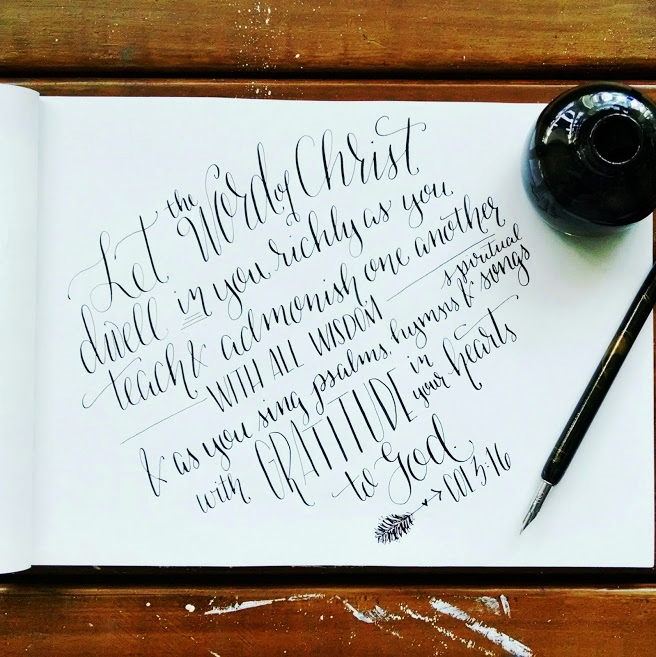 Let the Word of Christ
dwell in you richly as you
teach & admonish one another
WITH ALL WISDOM
& as you sing psalms, hymns & spiritual songs
with GRATITUDE in your hearts
to God.
Col 3:16